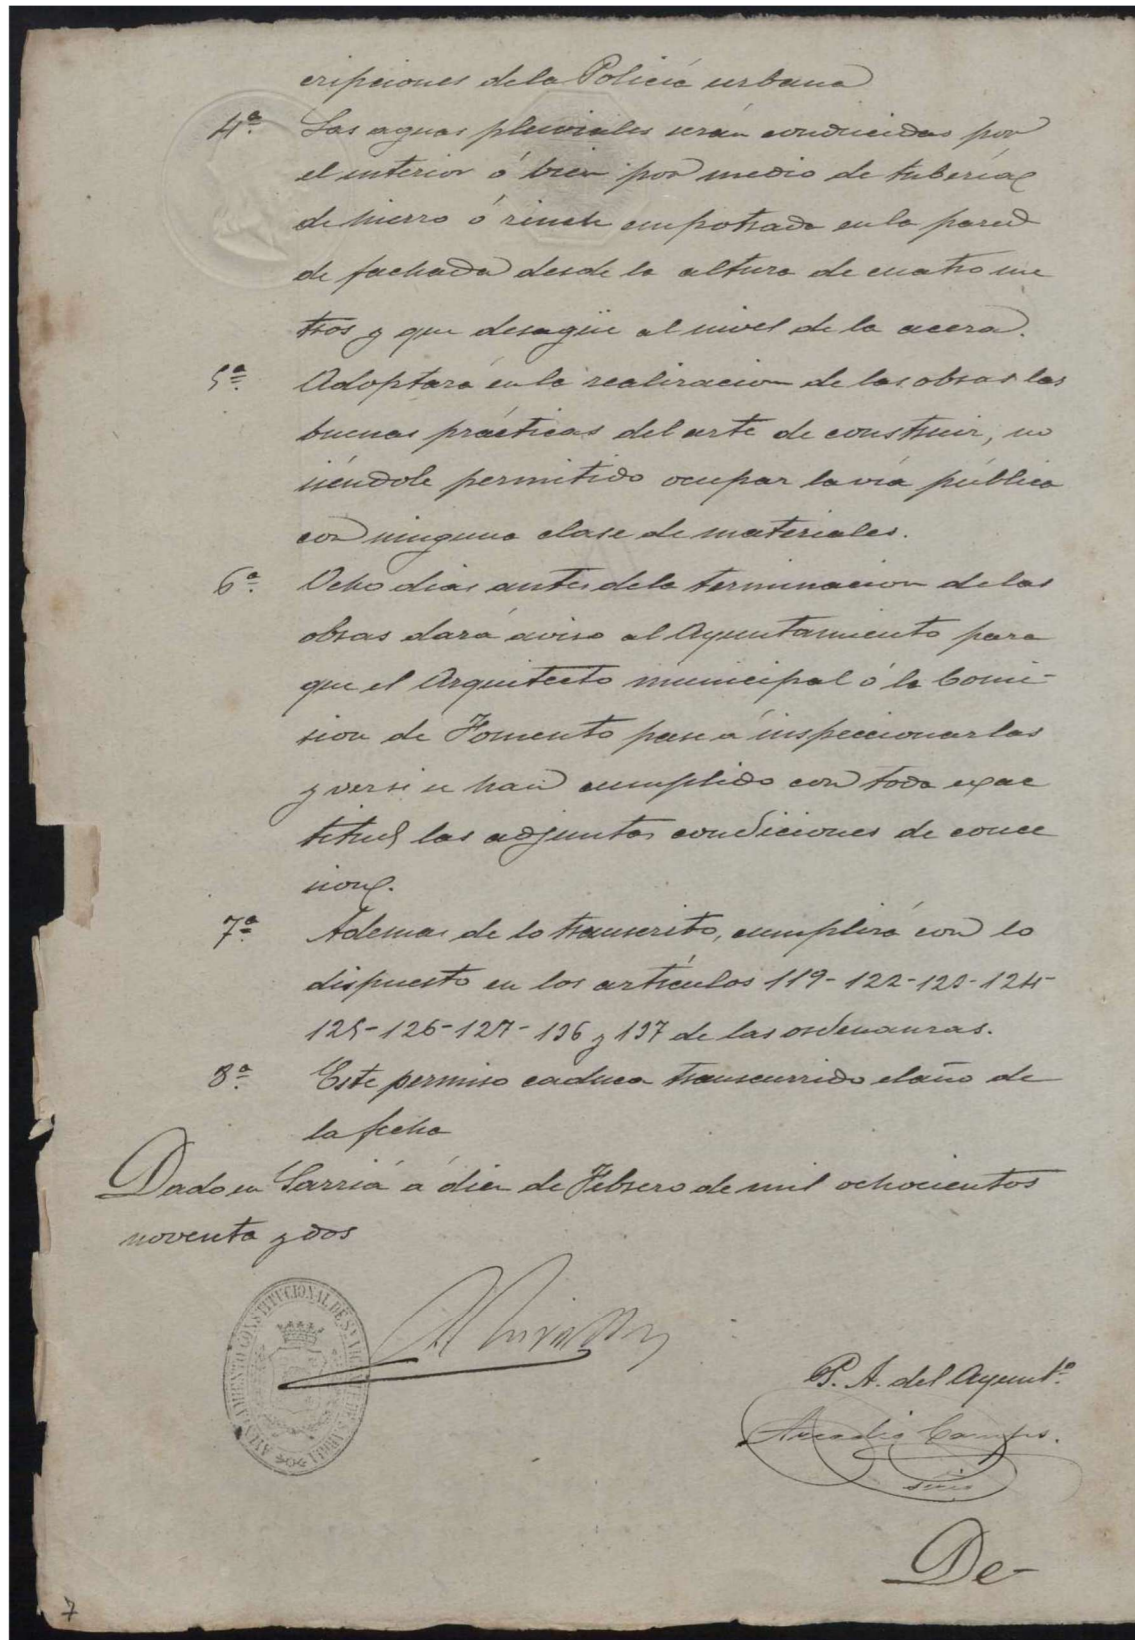 cripciones de la Policía urbana
4ª Las aguas pluviales serán conducidas por
el interior ó bien por medio de tubería
de hierro ó zinch empotrada en la pared
de fachada desde la altura de cuatro me
tros y que desagüe al nivel de la acera.
5ª Adoptará en la realizacion de las obras las
buenas prácticas del arte de construir, no
siéndole permitido ocupar la vía pública
con ninguna clase de materiales.
6ª Ocho dias antes de la terminacion de las
obras dará aviso al Ayuntamiento para
que el Arquitecto municipal ó la Comi-
sion de Fomento pase á inspeccionarlas
y ver si se han cumplido con toda exac
titud las adjuntas condiciones de conce
sion.
7ª Ademas de lo transcrito, cumplirá con lo
dispuesto en los artículos 119-122-123-124-
125-126-127-136 y 137 de las ordenanzas.
8ª Este permiso caduca transcurrido el año de
la fecha
Dado en Sarriá á diez de Febrero de mil ochocientos
noventa y dos
AYUNTAMIENTO CONSTITUCIONAL DE Sn VICENTE DE SARRIA
P. A. del Ayunt.º
Arcadio Camps.
srio
De-
7